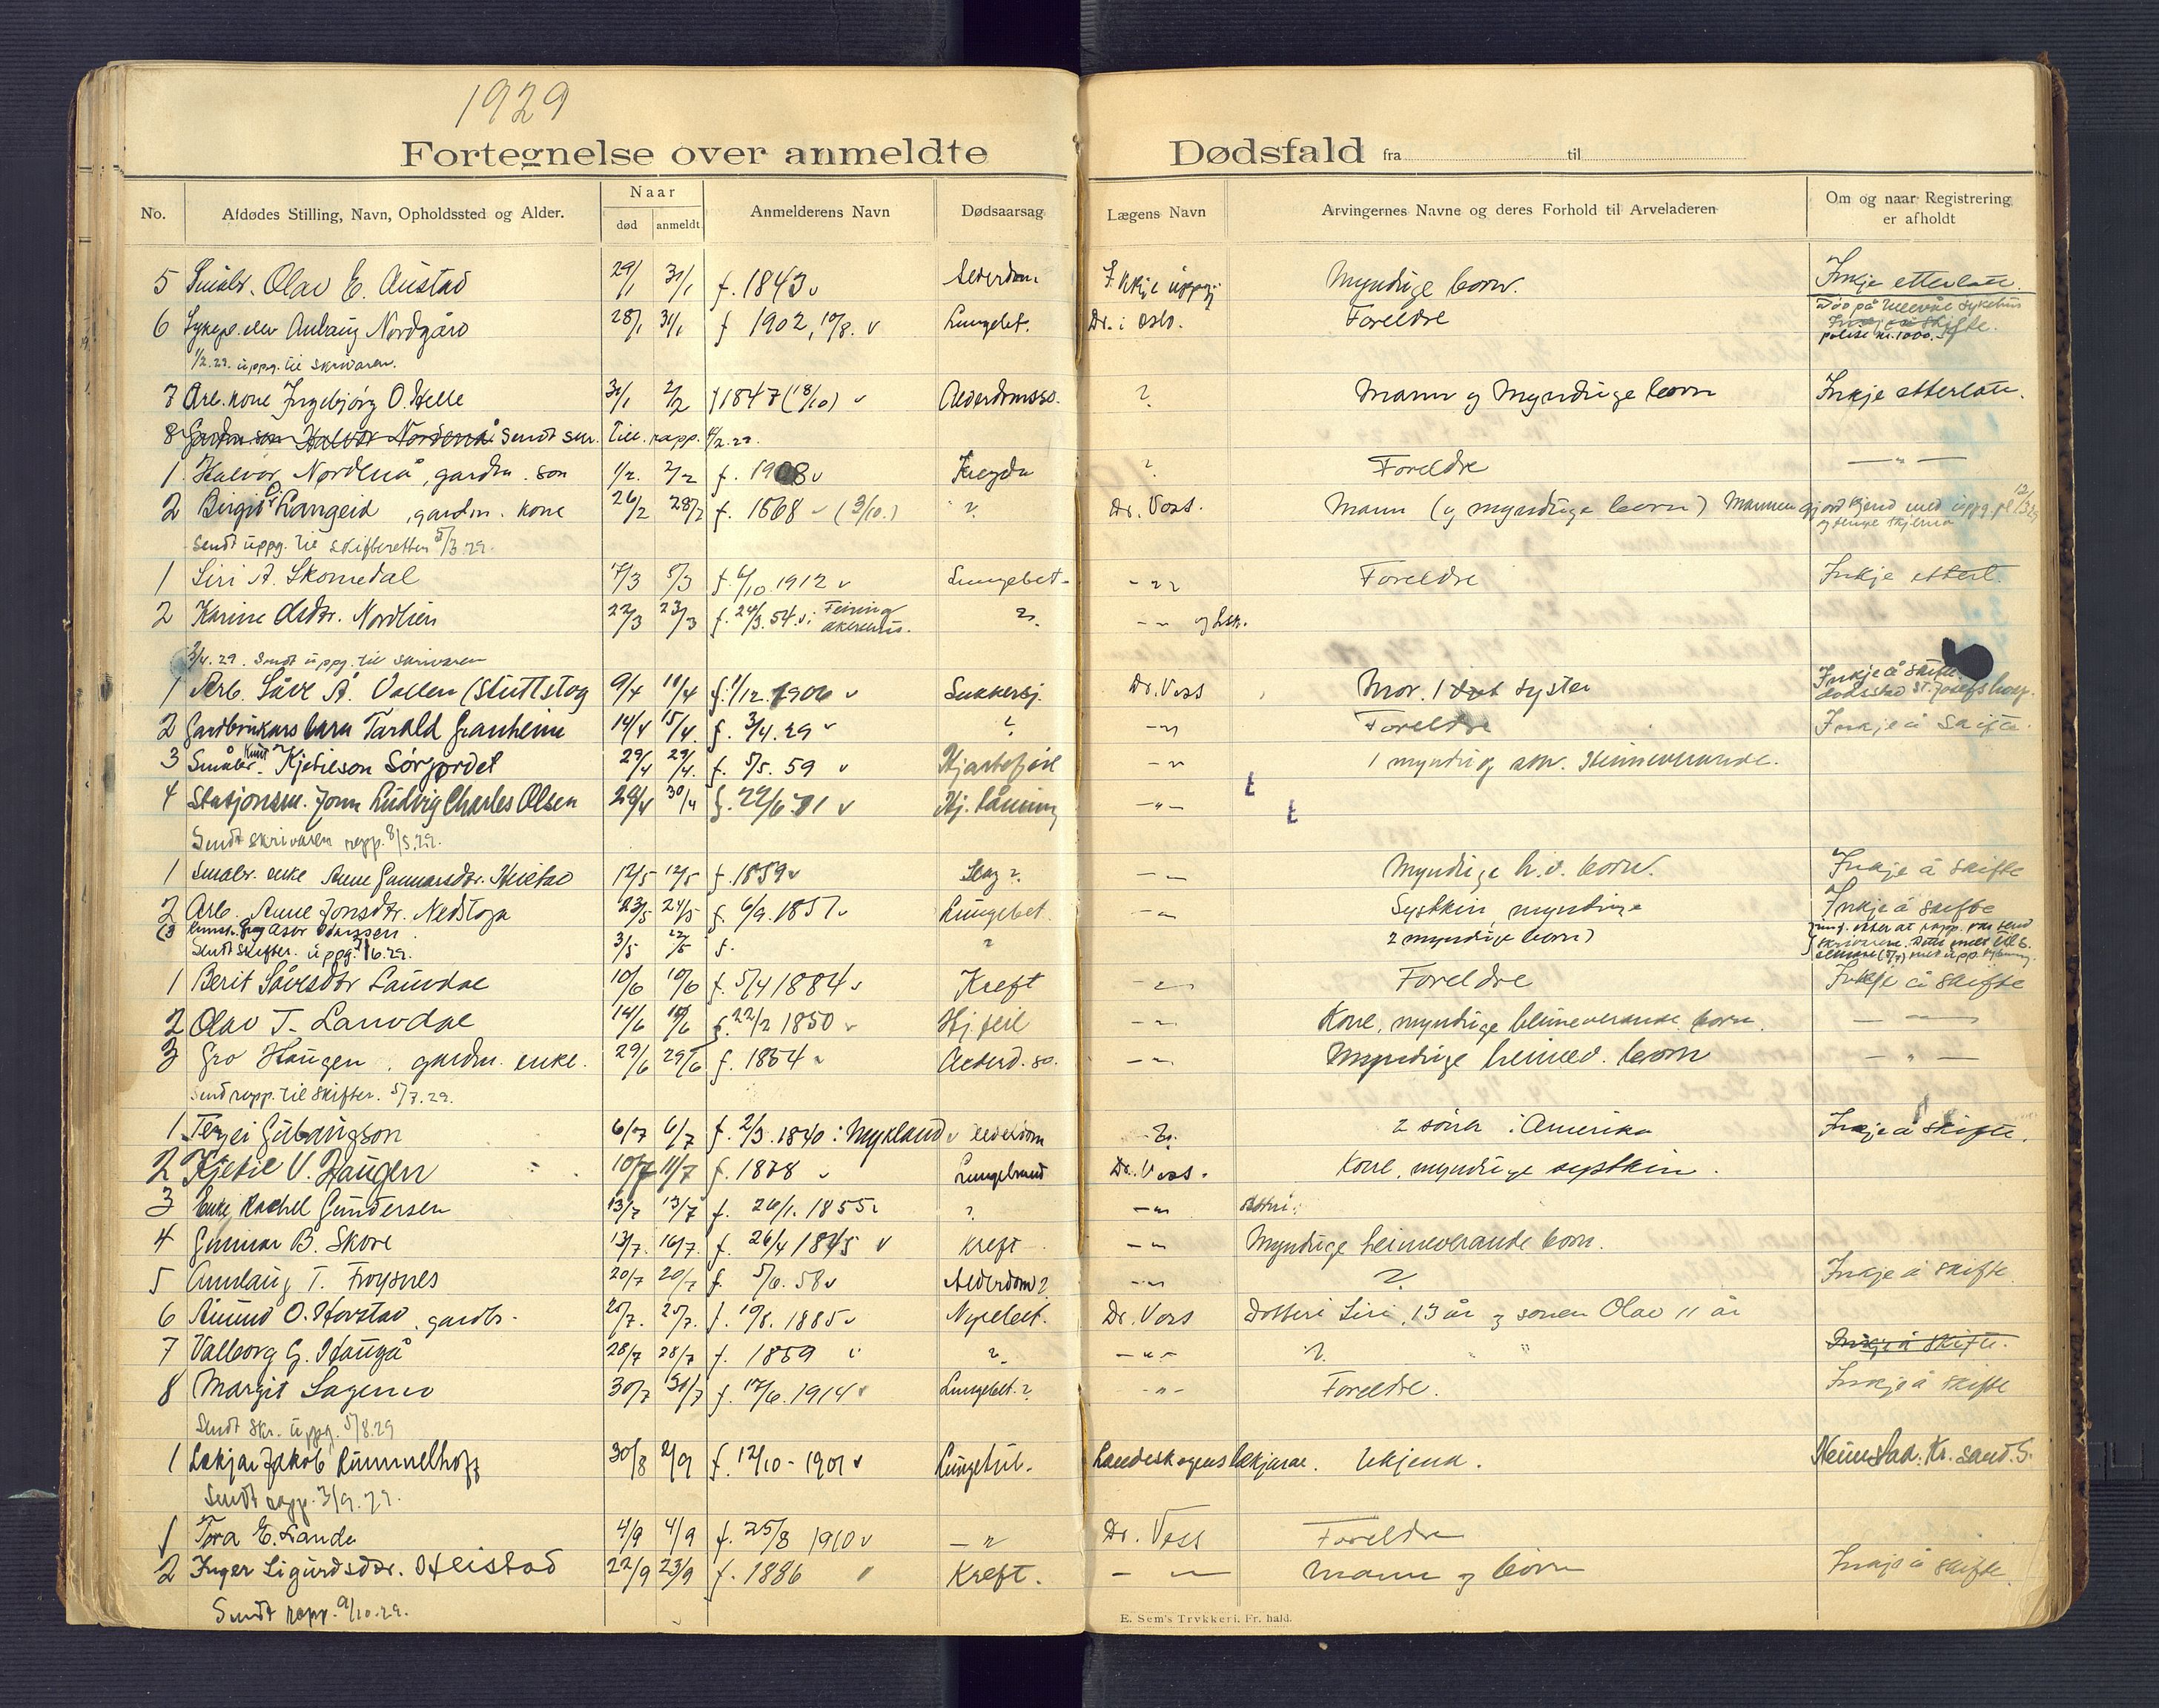 1929
Fortegnelse over anmeldte Dødsfald fra til
No. Afdødes Stilling, Navn, Opholdssted og Alder. Naar død anmeldt Anmelderens Navn Dødsaarsag Lægens Navn Arvingernes Navne og deres Forhold til Arveladeren Om og naar Registrering er afholdt
5 Småbr. Olav E. Austad 29/1 31/1 f. 1843 Alderdom Ikkje uppg. Myndige born. Inkje etterlate.
6 Sykepl. elev Aulaug Nordgård 28/1 31/1 f 1902, 10/8. Lungebet. Dr. i Oslo. Foreldre Død på Ullevål sykehus
Inkje å skifte.
polise kr. 1000.-
1/2.29. uppg. til skrivaren.
7 Arb. kone Ingebjørg O. Helle 31/1 2/2 f 1847 (18/10) Alderdomssv. ? Mann og Myndige born Inkje etterlate.
8 Gardm. son Halvor Nordenå Sendt skr. till. rapp. 4/2.29.
1. Halvor Nordenå, gardm. son 1/2. 2/2 f. 1908 ? Foreldre — " —
2 Birgit O. Langeid, gardm. kone 26/2 28/2 f. 1868 (3/10.) ? Dr. Voss. Mann (og myndige born) Mannen gjord kjend med uppg. pl. 12/3 29
Sendt uppg. til skifteretten 5/3.29.
1 Siri A. Skomedal 7/3 5/3 f. 6/10 1912 Lungebet. - " Foreldre Inkje etterl.
2 Karine Olsdtr. Nordlien 22/3 23/3 f. 24/3. 54. i Feiring Akershus. ? - "
3/4. 29. Sendt uppg. til skrivaren
1 Arb. Såve Å. Vallen (Stuttstog 9/4 11/4 f. 1/12. 1906 Sukkersj. Dr. Voss Mor. 1 syster Inkje å skifte.
dødsstad St. Josefs hosp.
2 Gardbrukars barn Tarald Granheim 14/4 15/4. f. 3/4. 29 ? - " Foreldre Inkje å skifte.
3 Småbr. Knut Kjetilson Sørjordet 29/4 29/4. f. 5/5. 59 Hjartefeil - " 1 myndig son. Heimeverande.
4 Stasjonsm. John Ludvig Charles Olsen 28/4 30/4 f. 24/6 71 Hj. låming - " -
Sendt skrivaren rapp. 8/5.29.
1 Småbr. enke Anne Gunnarsdtr. Heistad 12/5 12/5 f. 1859 Slag? - " Myndige h.v. born. Inkje å skifte
2 Arb. Anne Jonsdtr. Nedstoga 23/5 24/5 f. 6/9. 1857 Lungebet. - " Syskin, myndige Inkje å skifte
(3 3/5 f. ? 2 myndige born)
Sendt skifter. uppg. 1/6.29.
1 Berit Såvesdtr Lauvdal 10/6 10/6 f. 5/4 1884 Kreft - " Foreldre Inkje å skifte
2 Olav T. Lauvdal 14/6 f. 22/2 1850 Hj. feil - " - Kone, myndige heimeverande born. — " —
3 Gro Haugen, gardm. enke. 29/6 29/6 f. 1854 Alderd. sv. - " - Myndige heimev. born — " —
Send rapp. til skifter. 5/7.29.
1 Terjei Gulbangson 6/7 6/7 f. 2/3. 1840 i Mykland Alderdom 2 søner i Amerika Inkje å skifte.
2 Kjetil V. Haugen 10/7 11/7 f. 1878 Lungebrand Dr. Voss. Kone, myndige systkin.
3 Enke Rachel Gundersen 13/7 13/7 f. 26/1. 1855 ? - "
4 Gunnar B. Skore 13/7. 16/7. f. 26/4 1845 Kreft - " Myndige heimeverande born.
5 Aanlaug T. Frøysnes 20/7 20/7 f. 5/6. 58 Alderdom? - " ? Inkje å skifte
6 Åmund O. Horstad, gardbr. 20/7. f. 19/8. 1885 Nyrebet. Dr. Voss Dotteri Siri, 13 år og sonen Olav 11 år
7 Valborg G. Haugå 28/7 28/7 f. 1859 ? - " - ? Inkje å skifte.
8 Margit Lagemo 30/7 31/7 f. 17/6. 1914 Lungebet.? - " - Foreldre. Inkje å skifte
Sendt skr. uppg. 5/8.29
1 Lækjar Jakob Rummelhoff 30/8 2/9 f. 12/10 - 1901 Lungetub. Landeskogens lækjarar. Ukjend. Heimstad. Kr. sand. S.
Sendt rapp. 3/9.29.
1 Tora E. Lande 4/9 4/9 f. 25/8 1910 — " Dr. Voss Foreldre
2 Inger Sigurdsdtr. Heistad 22/9 23/9 f. 1886 Kreft. — " — Mann og born Inkje å skifte
Sendt rapp. 9/10.29.
E. Sem's Trykkeri, Fr. hald.